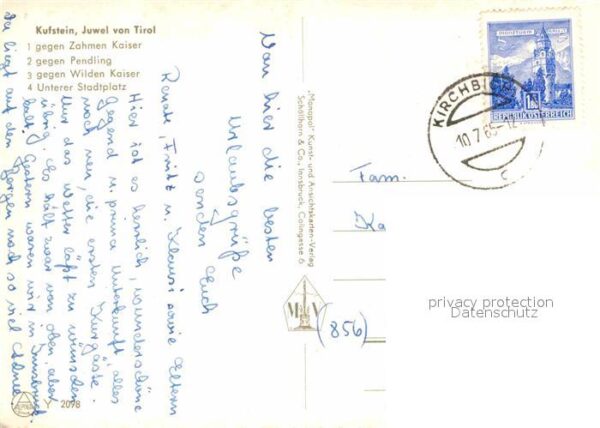 Kufstein, Juwel von Tirol
1 gegen Zahmen Kaiser
2 gegen Pendling
3 gegen Wilden Kaiser
4 Unterer Stadtplatz
Von hier die besten
Urlaubsgrüße
senden Euch
Renate, Fritz u. Klausi sowie Eltern
Hier ist es herrlich, wunderschöne
Gegend u. prima Unterkunft, alles
noch neu, die ersten Kurgäste.
Nur das Wetter läßt zu wünschen
übrig. Es hält zwar von oben, aber
kalt. Gestern waren wir in Innsbruck
Da liegt auf den Bergen noch so viel Schnee
"Monopol" Kunst- und Ansichtskarten-Verlag
Schöllhorn & Co., Innsbruck, Colingasse 6
M V
Y 2098
1.50
REPUBLIK ÖSTERREICH
KIRCHBICHL
10.7.65-12
c
Fam.
Ka
(856)
privacy protection
Datenschutz